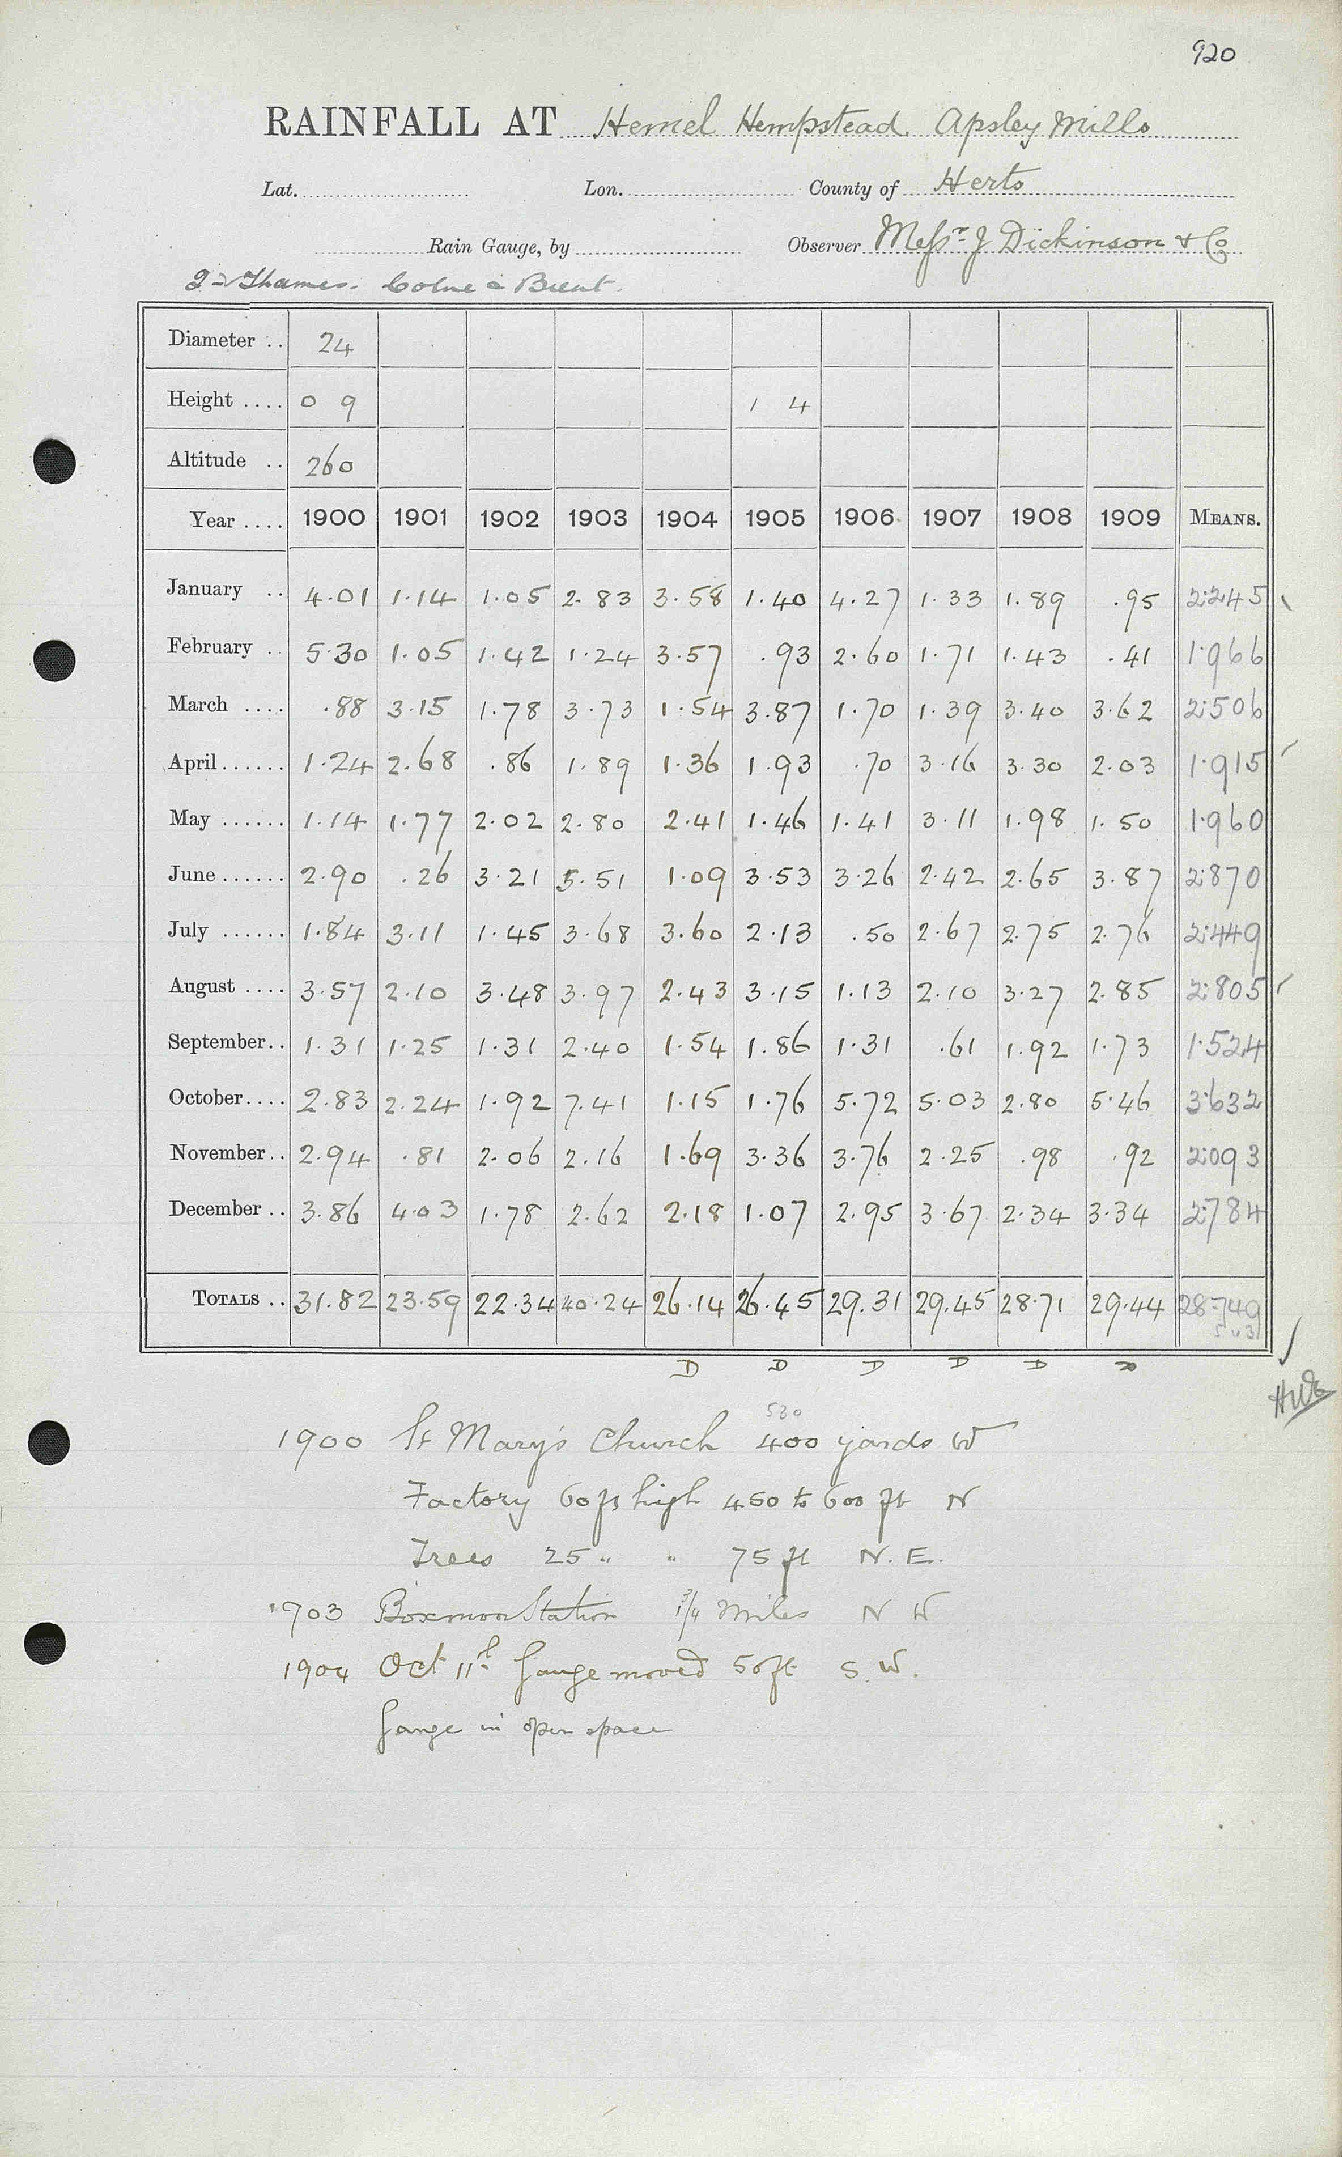 920
RAINFALL AT Hemel Hempstead Apsley Mills
Lat. Lon. County of Herts
Rain Gauge, by Observer Messrs J Dickinson & Co
Thames. Colne & Brent.
Diameter .. 24
Height .... 0 9 1 4
Altitude .. 260
Year .... 1900 1901 1902 1903 1904 1905 1906 1907 1908 1909 MEANS.
January .. 4.01 1.14 1.05 2.83 3.58 1.40 4.27 1.33 1.89 .95 2.245
February .. 5.30 1.05 1.42 1.24 3.57 .93 2.60 1.71 1.43 .41 1.966
March .... .88 3.15 1.78 3.73 1.54 3.87 1.70 1.39 3.40 3.62 2.506
April ...... 1.24 2.68 .86 1.89 1.36 1.93 .70 3.16 3.30 2.03 1.915
May ...... 1.14 1.77 2.02 2.80 2.41 1.46 1.41 3.11 1.98 1.50 1.960
June ...... 2.90 .26 3.21 5.51 1.09 3.53 3.26 2.42 2.65 3.87 2.870
July ...... 1.84 3.11 1.45 3.68 3.60 2.13 .50 2.67 2.75 2.76 2.449
August .... 3.57 2.10 3.48 3.97 2.43 3.15 1.13 2.10 3.27 2.85 2.805
September .. 1.31 1.25 1.31 2.40 1.54 1.86 1.31 .61 1.92 1.73 1.524
October .... 2.83 2.24 1.92 7.41 1.15 1.76 5.72 5.03 2.80 5.46 3.632
November .. 2.94 .81 2.06 2.16 1.69 3.36 3.76 2.25 .98 .92 2.093
December .. 3.86 4.03 1.78 2.62 2.18 1.07 2.95 3.67 2.34 3.34 2.784
TOTALS .. 31.82 23.59 22.34 40.24 26.14 26.45 29.31 29.45 28.71 29.44 28.749
D D D D D D
530
1900 St Mary's Church 400 yards W
Factory 60 ft high 450 to 600 ft N
Trees 25 " " 75 ft N.E.
1903 Boxmoor Station 3/4 Miles N W
1904 Oct 11th Gauge moved 50 ft S.W.
Gauge in open space